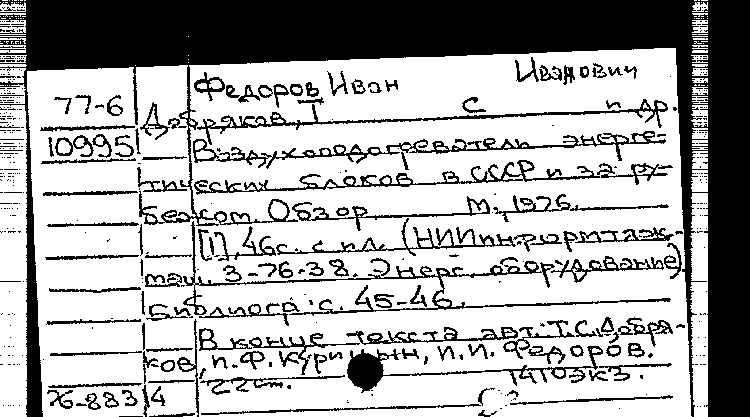 Федоров Иван Иванович
77-6 Добряков, Т С и др.
10995 Воздухоподогреватели энерге-
тических блоков в СССР и за ру-
бежом. Обзор М., 1976.
[1], 46с. с ил. (НИИинформтяж-
маш. 3-76-38. Энерг. оборудование)
Библиогр: с. 45-46.
В конце текста авт.: Т.С. Добря-
ков, П.Ф. Курицын, И.И. Федоров.
22см. 1410экз.
76-883 4